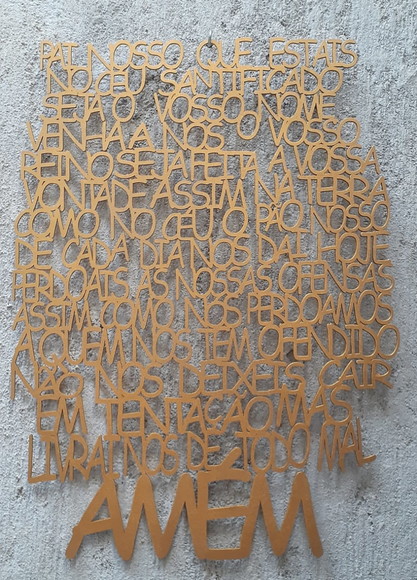 PAI NOSSO QUE ESTAIS
NO CÉU SANTIFICADO
SEJA O VOSSO NOME
VENHA A NÓS O VOSSO
REINO SEJA FEITA A VOSSA
VONTADE ASSIM NA TERRA
COMO NO CÉU O PÃO NOSSO
DE CADA DIA NOS DAI HOJE
PERDOAI AS NOSSAS OFENSAS
ASSIM COMO NÓS PERDOAMOS
A QUEM NOS TEM OFENDIDO
NÃO NOS DEIXEIS CAIR
EM TENTAÇÃO MAS
LIVRAI NOS DE TODO MAL
AMÉM